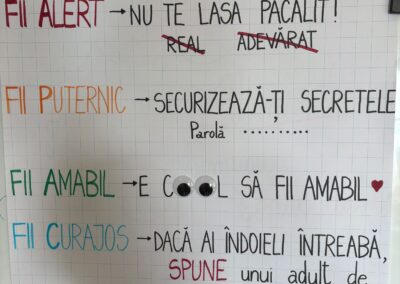 FII ALERT → NU TE LASA PACALIT!
REAL ADEVĂRAT
FII PUTERNIC → SECURIZEAZĂ-ȚI SECRETELE
Parolă ..........
FII AMABIL → E COOL SĂ FII AMABIL ♥
FII CURAJOS → DACĂ AI ÎNDOIELI ÎNTREABĂ,
SPUNE unui adult de